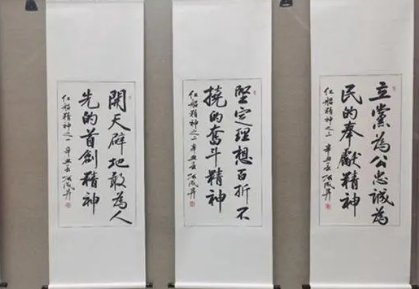 開天辟地敢為人
先的首創精神
红船精神之一
堅定理想百折不
撓的奮斗精神
红船精神之二
立黨為公忠誠為
民的奉獻精神
红船精神之三